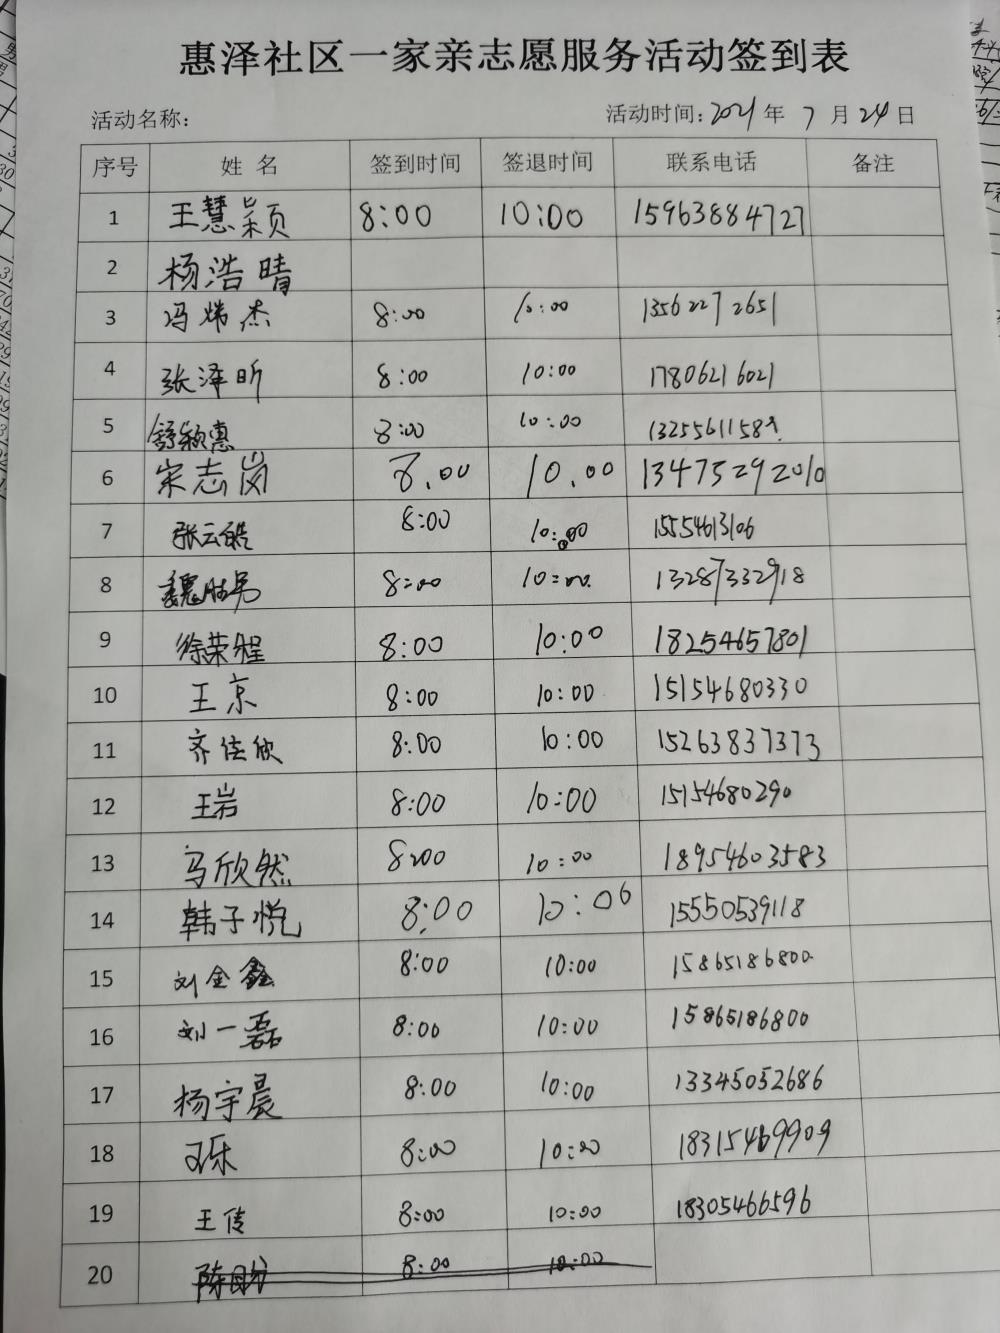 惠泽社区一家亲志愿服务活动签到表
活动名称: 活动时间:2021年 7月24日
序号 姓名 签到时间 签退时间 联系电话 备注
1 王慧颖 8:00 10:00 15963884727
2 杨浩晴
3 冯炜杰 8:00 10:00 13562272651
4 张泽昕 8:00 10:00 17806216021
5 舒颖惠 8:00 10:00
6 宋志岗 8.00 10.00 13475292010
7 张云皓 8:00 10:00 15554613106
8 8:00 10:00 13287332918
9 徐荣程 8:00 10:00 18254657801
10 王京 8:00 10:00 15154680330
11 齐佳欣 8:00 10:00 15263837373
12 王岩 8:00 10:00 15154680290
13 马欣然 8:00 10:00 18954603583
14 韩子悦 8:00 10:06 15550539118
15 刘金鑫 8:00 10:00 15865186800
16 刘一磊 8:00 10:00 15865186800
17 杨宇晨 8:00 10:00 13345052686
18 8:00 10:00 18315469909
19 王传 8:00 10:00 18305466596
20 8:00 10:00